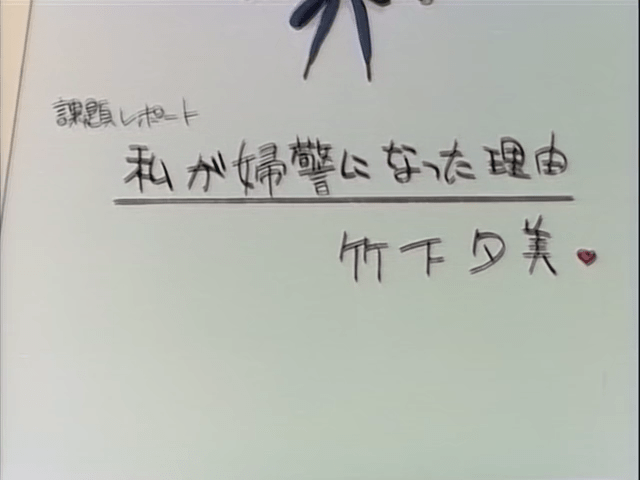 課題レポート
私が婦警になった理由
竹下夕美